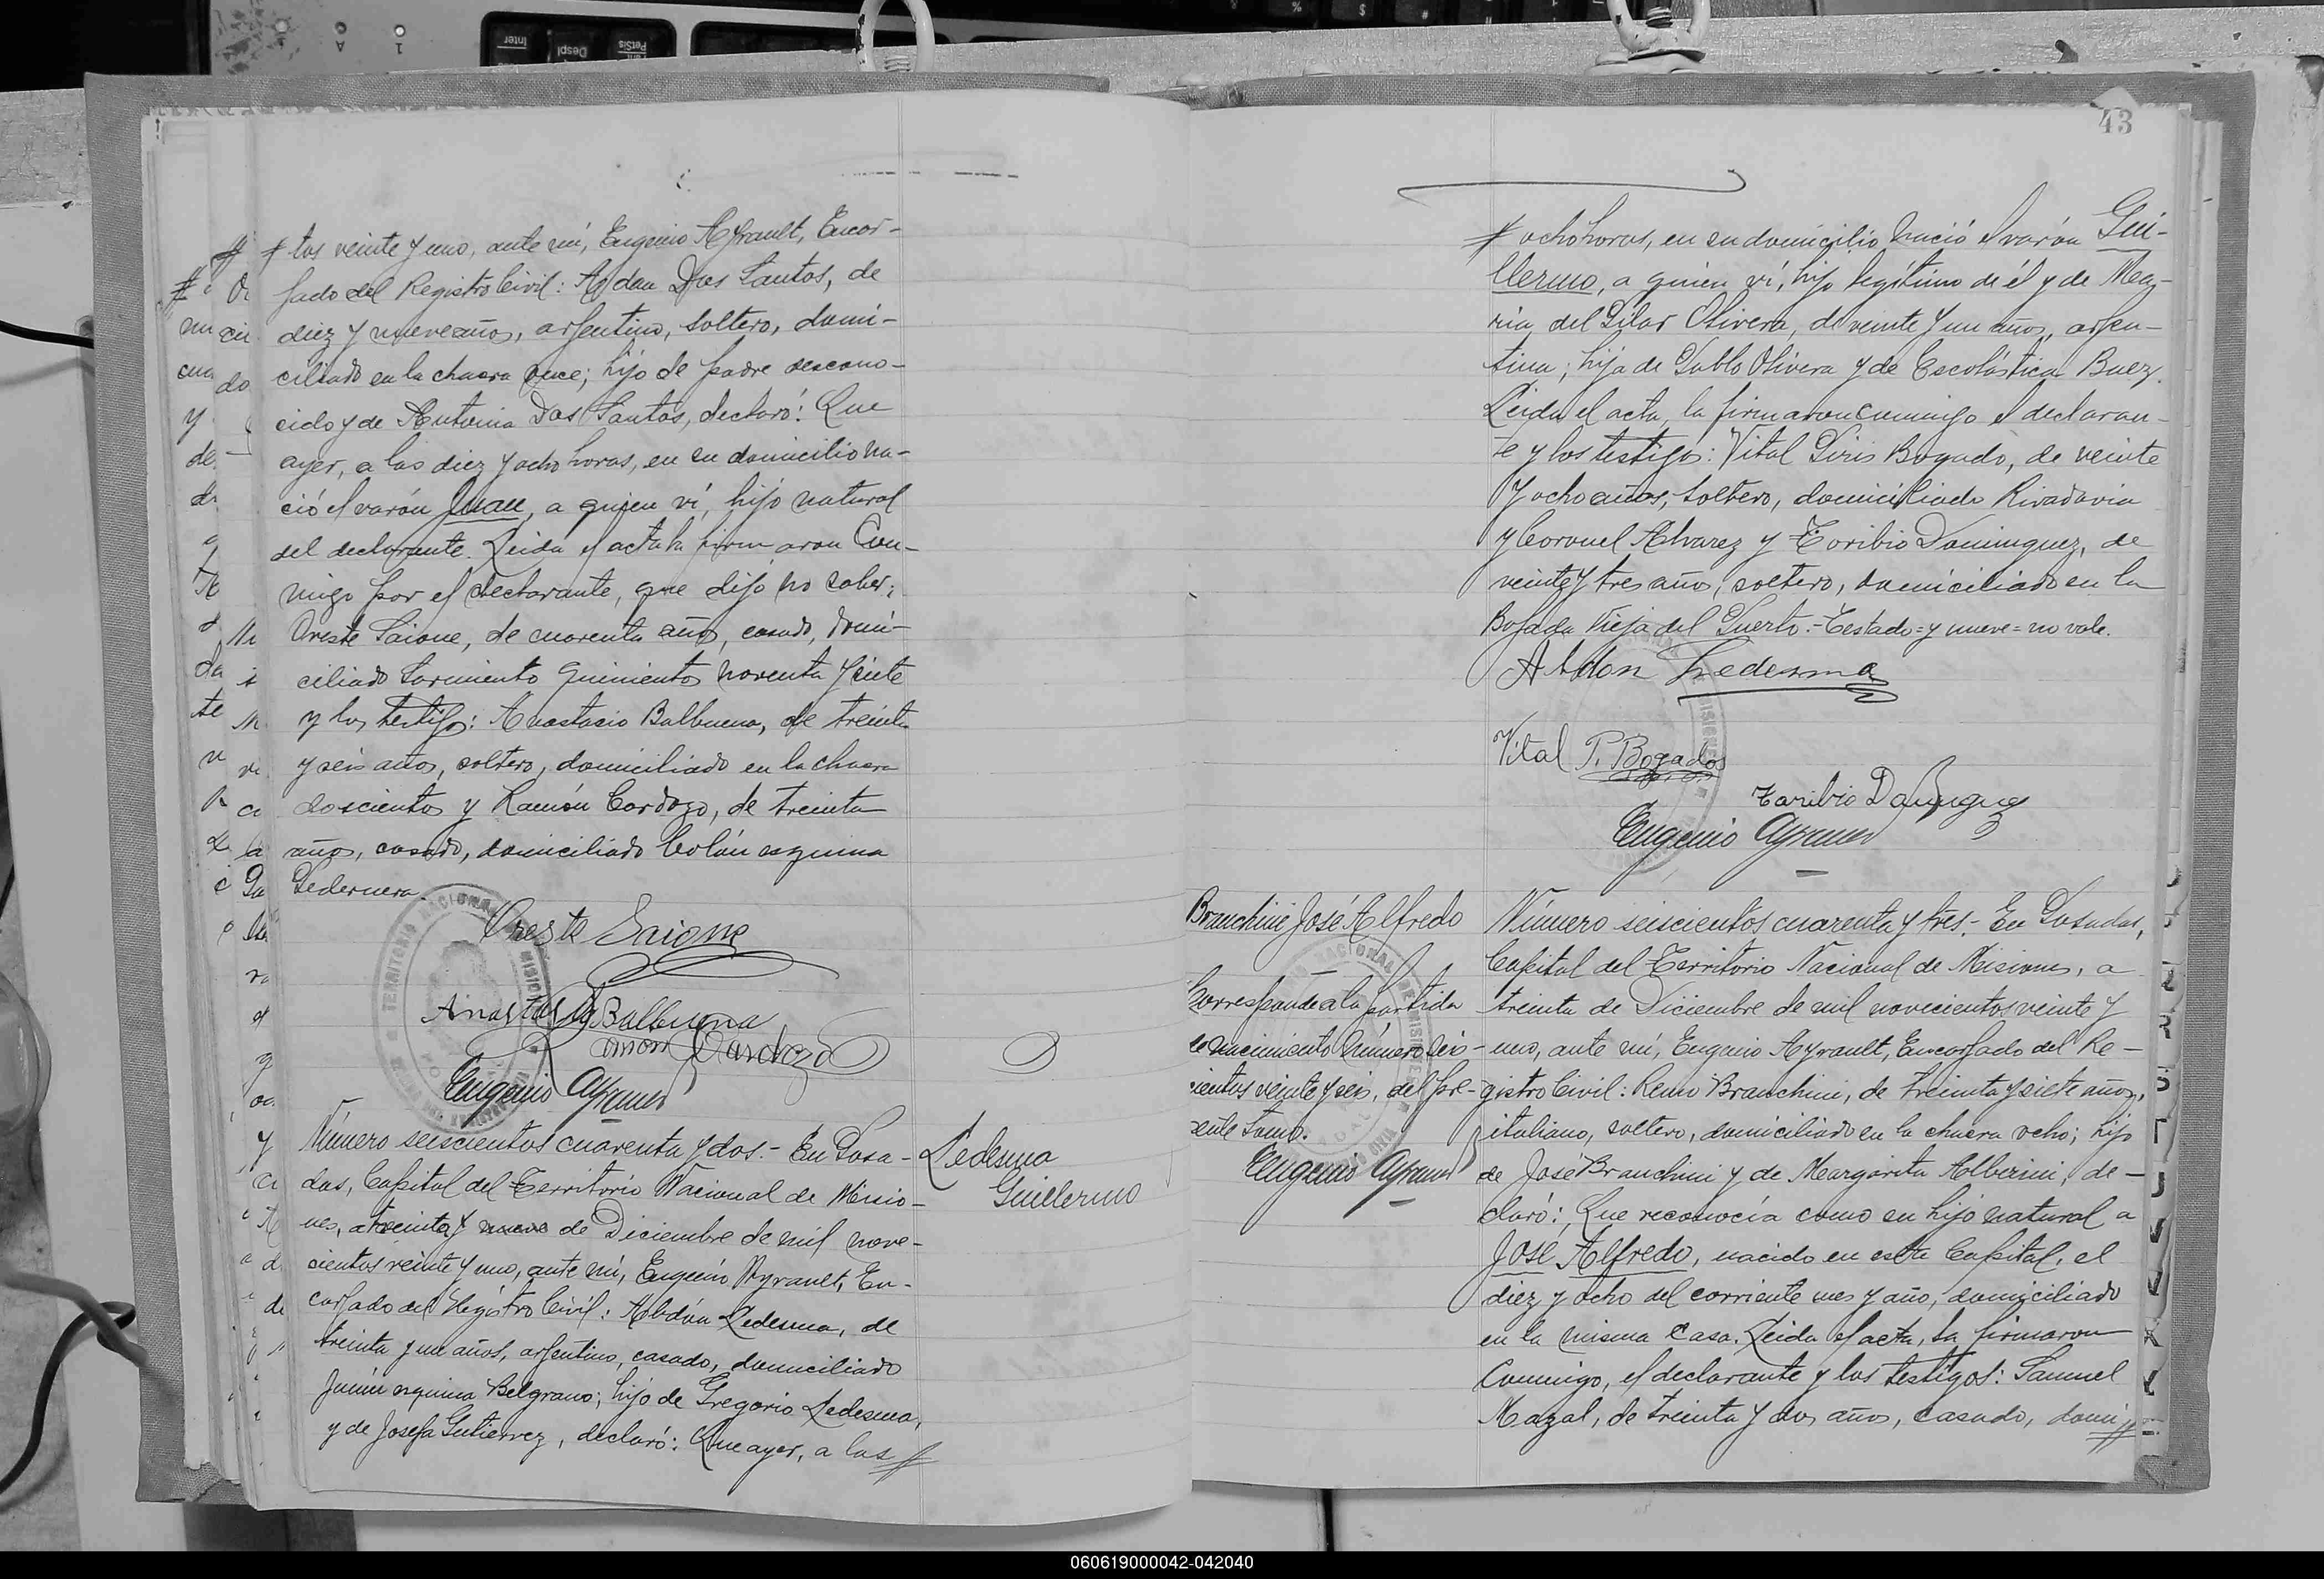 # tos veinte y uno, ante mí, Eugenio Ayrault, Encar-
gado del Registro Civil: Aydan Dos Santos, de
diez y nueve años, argentino, soltero, domi-
ciliado en la chacra once; hijo de padre descono-
cido y de Antonia Dos Santos, declaró: Que
ayer, a las diez y ocho horas, en su domicilio na-
ció el varón Juan, a quien ví, hijo natural
del declarante. Leida el acta la firmaron Con-
migo por el declarante, que dijo no saber;
Oreste Saione, de cuarenta años, casado, domi-
ciliado Sarmiento quinientos noventa y siete
y los testigos: Anastacio Balbuena, de treinta
y seis años, soltero, domiciliado en la chacra
doscientos y Ramón Cardozo, de treinta
años, casado, domiciliado Colón esquina
Pedernera.
Oreste Saione
Anastacio Balbuena
Ramon Cardozo
Eugenio Ayrault
Número seiscientos cuarenta y dos.- En Posa-
das, Capital del Territorio Nacional de Misio-
nes, a treinta y nueve de Diciembre de mil nove-
cientos veinte y uno, ante mí, Eugenio Ayrault, En-
cargado del Registro Civil: Abdón Ledesma, de
treinta y un años, argentino, casado, domiciliado
Junín esquina Belgrano; hijo de Gregorio Ledesma,
y de Josefa Gutierrez, declaró: Que ayer, a las #
Ledesma
Guillermo
43
# ocho horas, en su domicilio nació el varón Gui-
llermo, a quien ví, hijo legítimo de él y de Ma-
ria del Pilar Olivera, de veinte y un años, argen-
tina; hija de Pablo Olivera y de Escolástica Baez.
Leida el acta, la firmaron Conmigo el declaran-
te y los testigos: Vital Piris Bogado, de veinte
y ocho años, soltero, domiciliado Rivadavia
y Coronel Alvarez y Toribio Dominguez, de
veinte y tres años, soltero, domiciliado en la
Bajada Vieja del Puerto.- Testado = y nueve = no vale.
Abdon Ledesma
Vital P. Bogado
Toribio Dominguez
Eugenio Ayrault
Branchini José Alfredo
Corresponde a la partida
de nacimiento número seis-
cientos veinte y seis, del pre-
sente tomo.
Eugenio Ayrault
Número seiscientos cuarenta y tres.- En Posadas,
Capital del Territorio Nacional de Misiones, a
treinta de Diciembre de mil novecientos veinte y
uno, ante mí, Eugenio Ayrault, Encargado del Re-
gistro Civil: Remo Branchini, de treinta y siete años,
italiano, soltero, domiciliado en la chacra ocho; hijo
de José Branchini y de Margarita Alberini, de-
claró: Que reconocía como su hijo natural a
José Alfredo, nacido en esta Capital, el
diez y ocho del corriente mes y año, domiciliado
en la misma Casa. Leida el acta, la firmaron
Conmigo, el declarante y los testigos: Samuel
Mazal, de treinta y dos años, casado, domi #
060619000042-042040